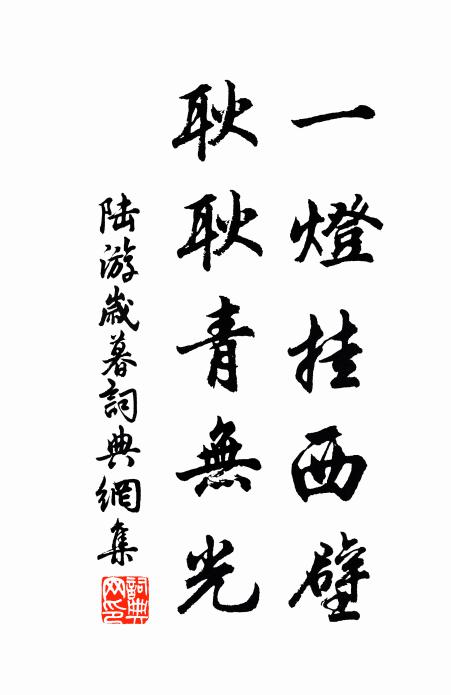 一燈挂西壁
耿耿青無光
陸游歲暮詞典網集
詞典網印